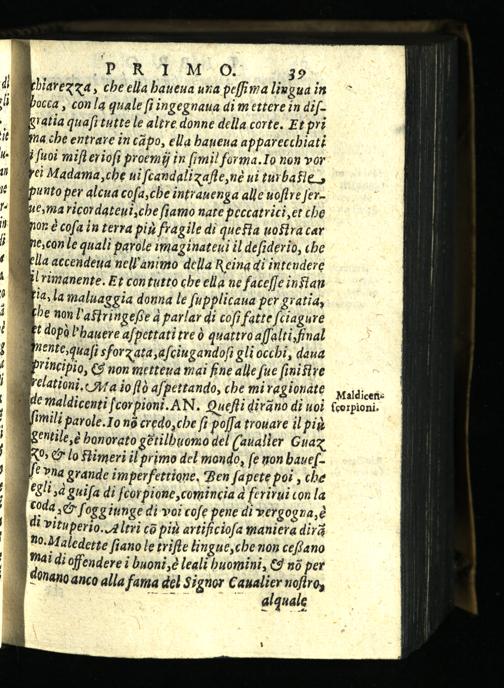 PRIMO. 39
chiarezza, che ella haueua una pessima lingua in
bocca, con la quale si ingegnaua di mettere in dis-
gratia quasi tutte le altre donne della corte. Et pri
ma che entrare in cãpo, ella haueua apparecchiati
i suoi misteriosi proemij in simil forma. Io non vor
rei Madama, che ui scandalizaste, nè ui turbaste
punto per alcua cosa, che intrauenga alle uostre ser-
ue, ma ricordateui, che siamo nate peccatrici, et che
non è cosa in terra più fragile di questa uostra car
ne, con le quali parole imaginateui il desiderio, che
ella accendeua nell'animo della Reina di intendere
il rimanente. Et contutto che ella ne facesse instan
tia, la maluaggia donna le supplicaua per gratia,
che non l'astringesse à parlar di cosi fatte sciagure
et dopò l'hauere aspettati tre ò quattro assalti, final
mente, quasi sforzata, asciugandosi gli occhi, daua
principio, & non metteua mai fine alle sue sinistre
relationi. Ma io stò aspettando, che mi ragionate
de maldicenti scorpioni. AN. Questi dirãno di uoi
simili parole. Io nõ credo, che si possa trouare il più
gentile, è honorato gẽtilhuomo del Caualier Guaz
zo, & lo stimerei il primo del mondo, se non haues-
se vna grande imperfettione. Ben sapete poi, che
egli, à guisa di scorpione, comincia à ferirui con la
coda, & soggiunge di voi cose pene di vergogna, è
di vituperio. Altri cõ più artificiosa maniera dirã
no. Maledette siano le triste lingue, che non ceßano
mai di offendere i buoni, è leali huomini, & nõ per
donano anco alla fama del Signor Caualier nostro,
alquale
Maldicen-
scorpioni.